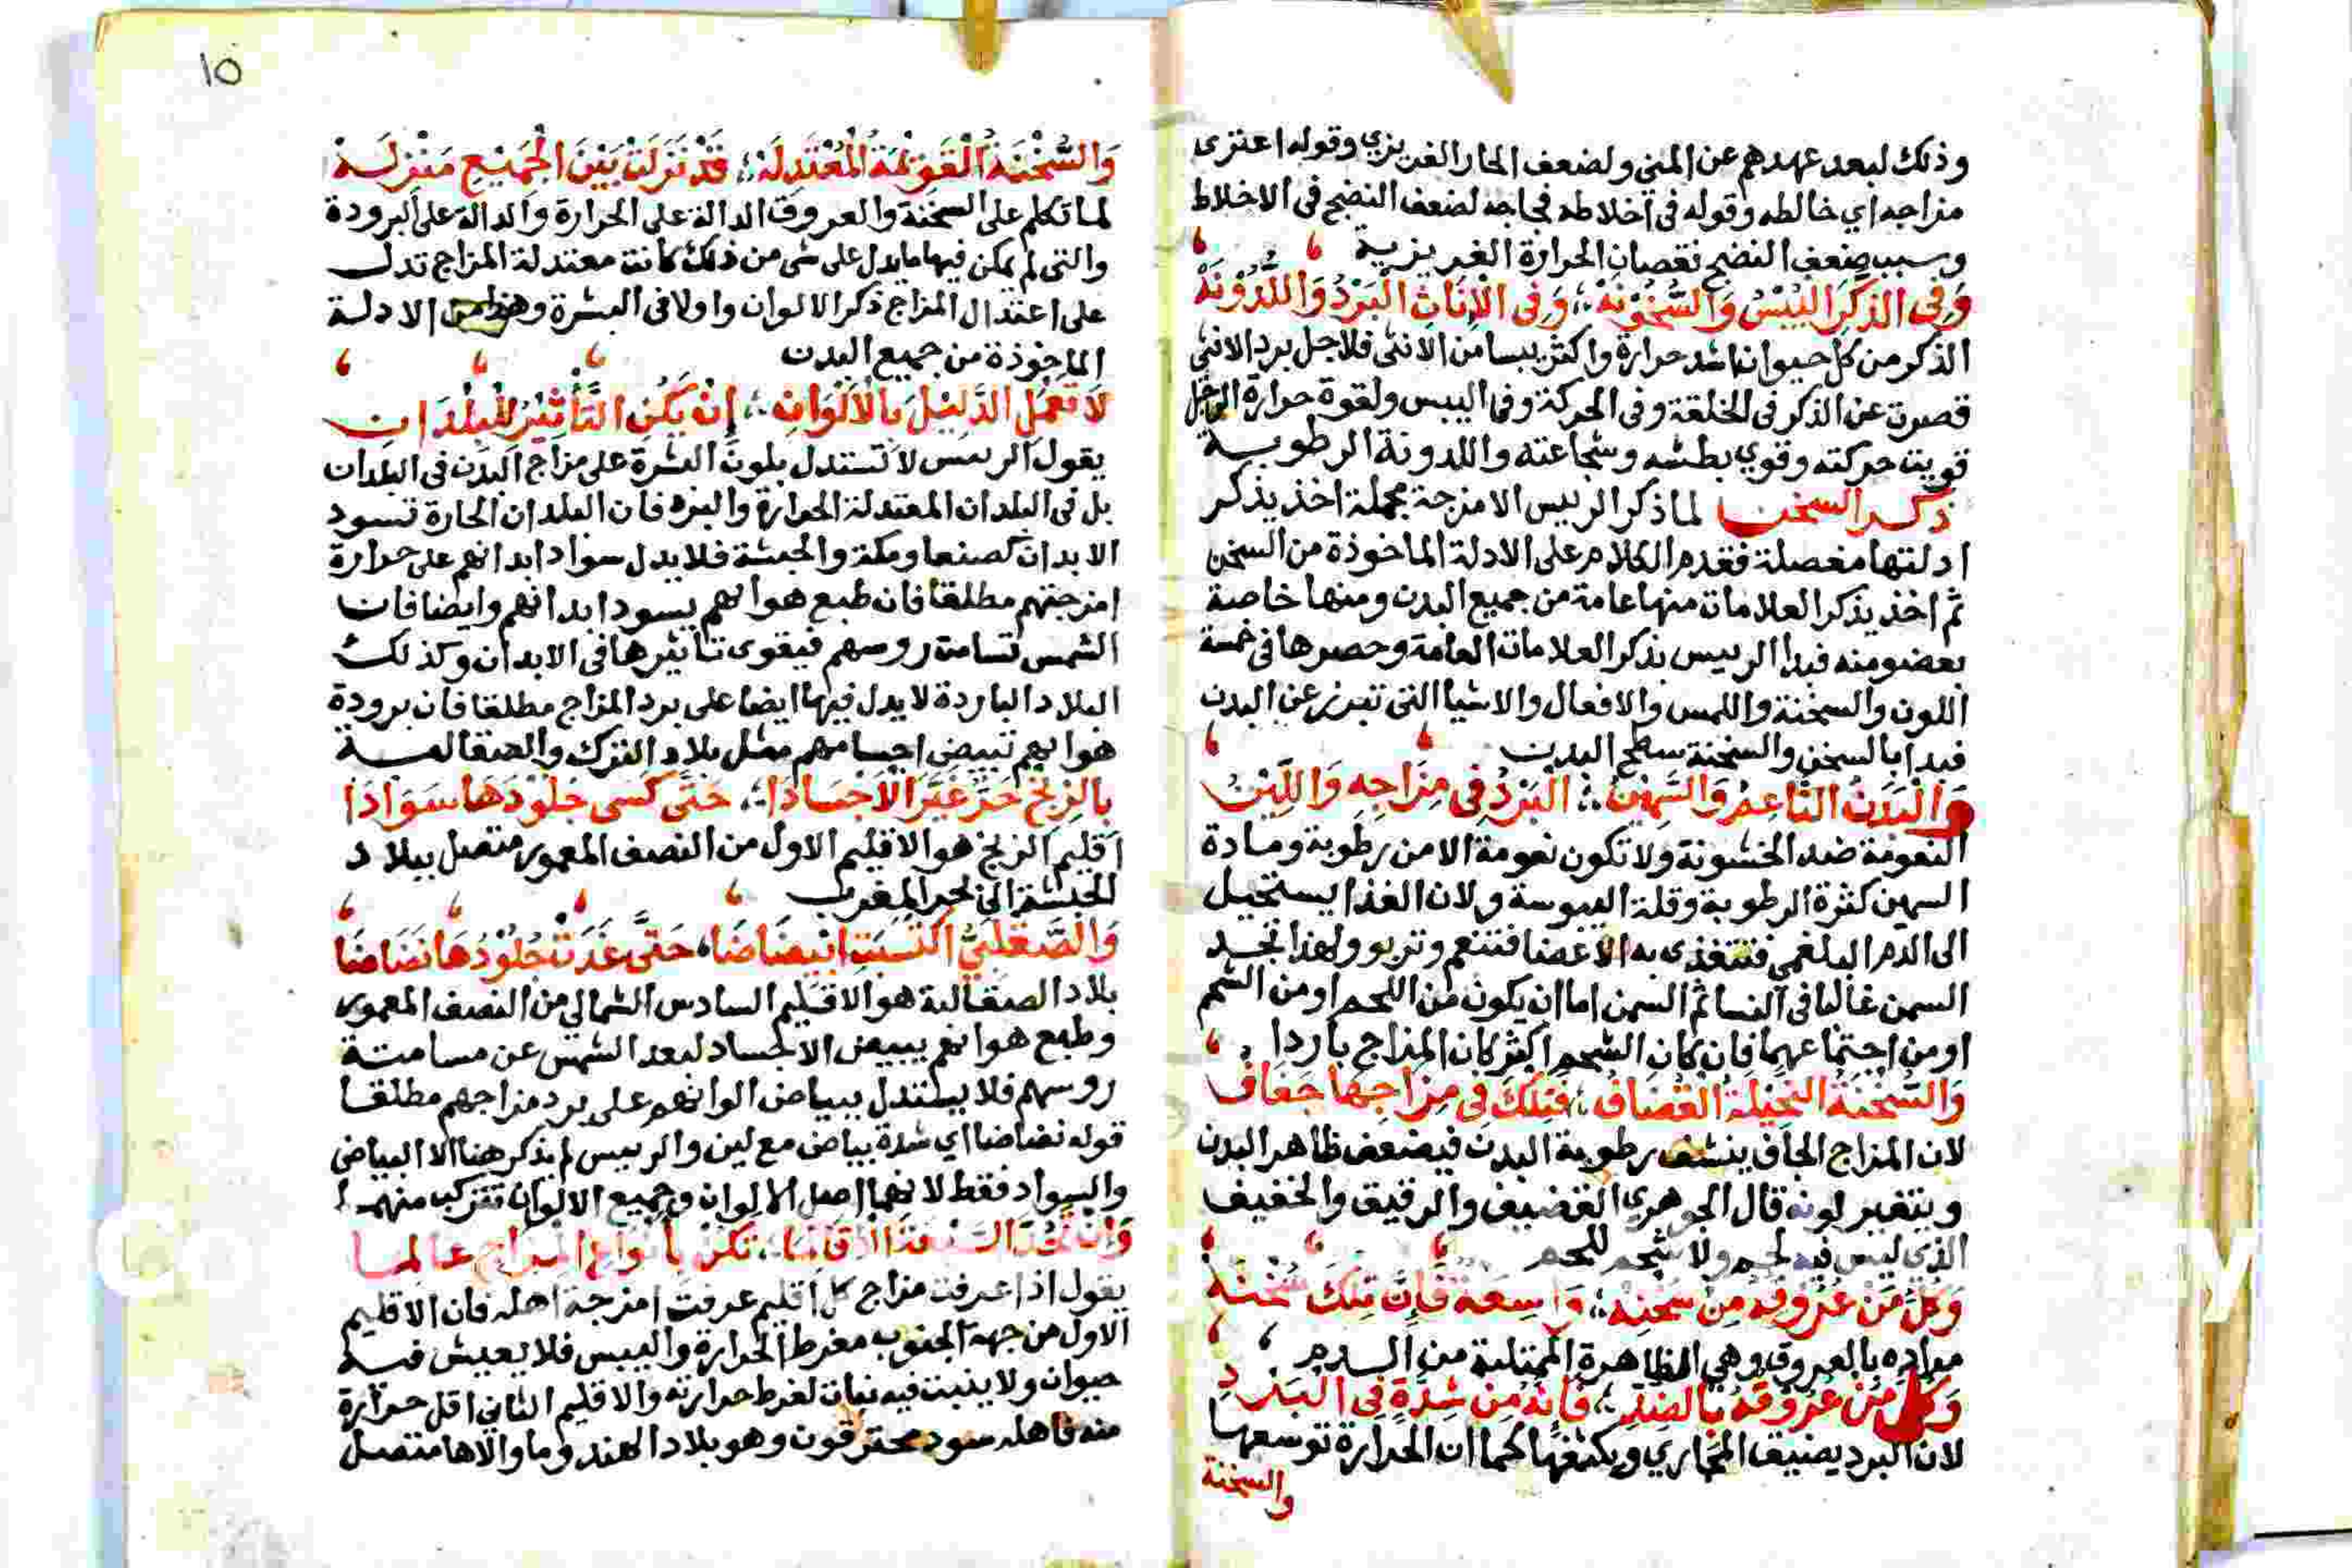 وذلك لبعد عهدهم عن المنى ولضعف الحار الغريزي وقوله اعترى
مزاجه اي خالطه وقوله فى اخلاطه فجاجه لضعف النضج فى الاخلاط
وسبب ضعف النضج نقصان الحرارة الغريزية
وَفِى الذكَرِ اليُبْسُ وَالسُّخُوْنَهْ وَفِى الْإِنَاثِ الْبَرْدُ وَاللُّدُوْنَهْ
الذكر من كل حيوان اشد حرارة واكثر يبسا من الانثى فلاجل برد الانثى
قصرت عن الذكر فى الخلقة وفى الحركة وفى اليبس ولقوة حرارة الرجل
قويت حركته وقوي بطشه وشجاعته واللدونة الرطوبة
ذكر السخن لما ذكر الرييس الامزجة مجملة اخذ يذكر
ادلتها مفصلة فقدم الكلام على الادلة الماخوذة من السخن
ثم اخذ يذكر العلامات منها عامة من جميع البدن ومنها خاصة
بعضو منه فبدا الرييس بذكر العلامات العامة وحصرها فى خمسة
اللون والسخنة واللمس والافعال والاشيا التى تبرز عن البدن
فبدا بالسخن والسخنة سطح البدن
وَالْبَدَنُ النَّاعِمْ وَالسَّمِيْنُ الْبَرْدُ فِى مِزَاجِهِ وَاللِّيْنُ
النعومة ضد الخشونة ولا تكون نعومة الا من رطوبة ومادة
السمين كثرة الرطوبة وقلة اليبوسة ولان الغذا يستحيل
الى الدم البلغمي فتتغذى به الاعضا فتنعم وتربو ولهذا تجد
السمن غالبا فى النسا ثم السمن اما ان يكون من اللحم او من الشحم
او من اجتماعهما فان كان الشحم اكثر كان المزاج باردا
وَالسُّخْنَةُ النَّحِيْلَةُ الْقِضَافُ فَتِلْكَ فِى مِزَاجِهَا جَفَافُ
لان المزاج الجاف ينشف رطوبة البدن فيضعف ظاهر البدن
ويتغير لونه قال الجوهري القضيف والرقيق والخفيف
الذى ليس فيه لحم ولا شحم للحم
وَكُلُّ مَنْ عُرُوقُهُ مِنْ سُخْنِهْ وَاسِعَةٌ فَإِنَّ تِلْكَ سُخْنَهْ
مراده بالعروق وهي الظاهرة الممتلية من الدم
وَكُلُّ مَنْ عُرُوْقُهُ بِالضِّدِّ فَإِنَّهُ مِنْ شِدَّةٍ فِى الْبَرْدِ
لان البرد يضيق المجاري ويكثفها كما ان الحرارة توسعها
والسخنة
١٥
وَالسُّخْنَةُ الْقَوِيْمَةُ الْمُعْتَدِلَهْ قَدْ نَزَلَتْ بَيْنَ الْجَمِيْعِ مَنْزِلَهْ
لما تكلم على السخنة والعروق الدالة على الحرارة والدالة على البرودة
والتى لم يكن فيها ما يدل على شى من ذلك كانت معتدلة المزاج تدل
على اعتدال المزاج ذكر الالوان واولا فى البشرة وهذا من الادلة
الماخوذة من جميع البدن
لَا تَعْمَلِ الدَّلِيْلَ بِالْأَلْوَانِ إِنْ يَكُنِ التَّأْثِيْرُ لِلْبُلْدَانِ
يقول الرييس لا تستدل بلون البشرة على مزاج البدن فى البلدان
بل فى البلدان المعتدلة الحرارة والبرد فان البلدان الحارة تسود
الابدان كصنعا ومكة والحبشة فلا يدل سواد ابدانهم على حرارة
امزجتهم مطلقا فان طبع هوايهم يسود ابدانهم وايضا فان
الشمس تسامت روسهم فيقوى تاثيرها فى الابدان وكذلك
البلاد الباردة لا يدل فيها ايضا على برد المزاج مطلقا فان برودة
هوايهم تبيض اجسامهم مثل بلاد الترك والصقالبة
بِالزِنْجِ حَرٌّ غَيَّرَ الْأَجْسَادَا حَتَّى كَسَى جُلُوْدَهَا سَوَادَا
اقليم الزنج هو الاقليم الاول من النصف المعمور متصل ببلاد
الحبشة الى بحر المغرب
وَالصَّقْلَبِيُّ اكْتَسَبَتِ ابْيِضَاضَا حَتَّى غَدَتْ جُلُوْدُهَا بَضَاضَا
بلاد الصقالبة هو الاقليم السادس الشمالي من النصف المعمور
وطبع هوائهم يبيض الاجساد لبعد الشمس عن مسامتة
روسهم فلا يستدل ببياض الوانهم على برد مزاجهم مطلقا
قوله بضاضا اي شدة بياض مع لين والرييس لم يذكر هنا الا البياض
والسواد فقط لانهما اصل الالوان وجميع الالوان تتركب منهما
يقول اذا عرفت مزاج كل اقليم عرفت امزجة اهله فان الاقليم
الاول من جهة الجنوب مفرط الحرارة واليبس فلا يعيش فيه
حيوان ولا ينبت فيه نبات لفرط حرارته والاقليم الثاني اقل حرارة
منه فاهله سود محترقون وهو بلاد الهند وما والاها متصل